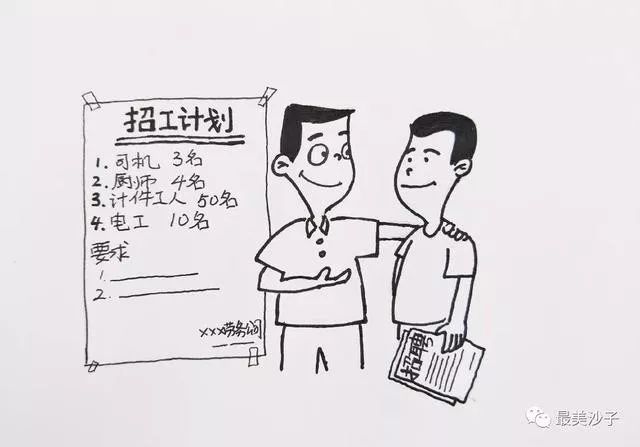 招工计划
1. 司机 3名
2. 厨师 4名
3. 计件工人 50名
4. 电工 10名
要求
1.
2.
×××劳务公司
招聘
最美沙子